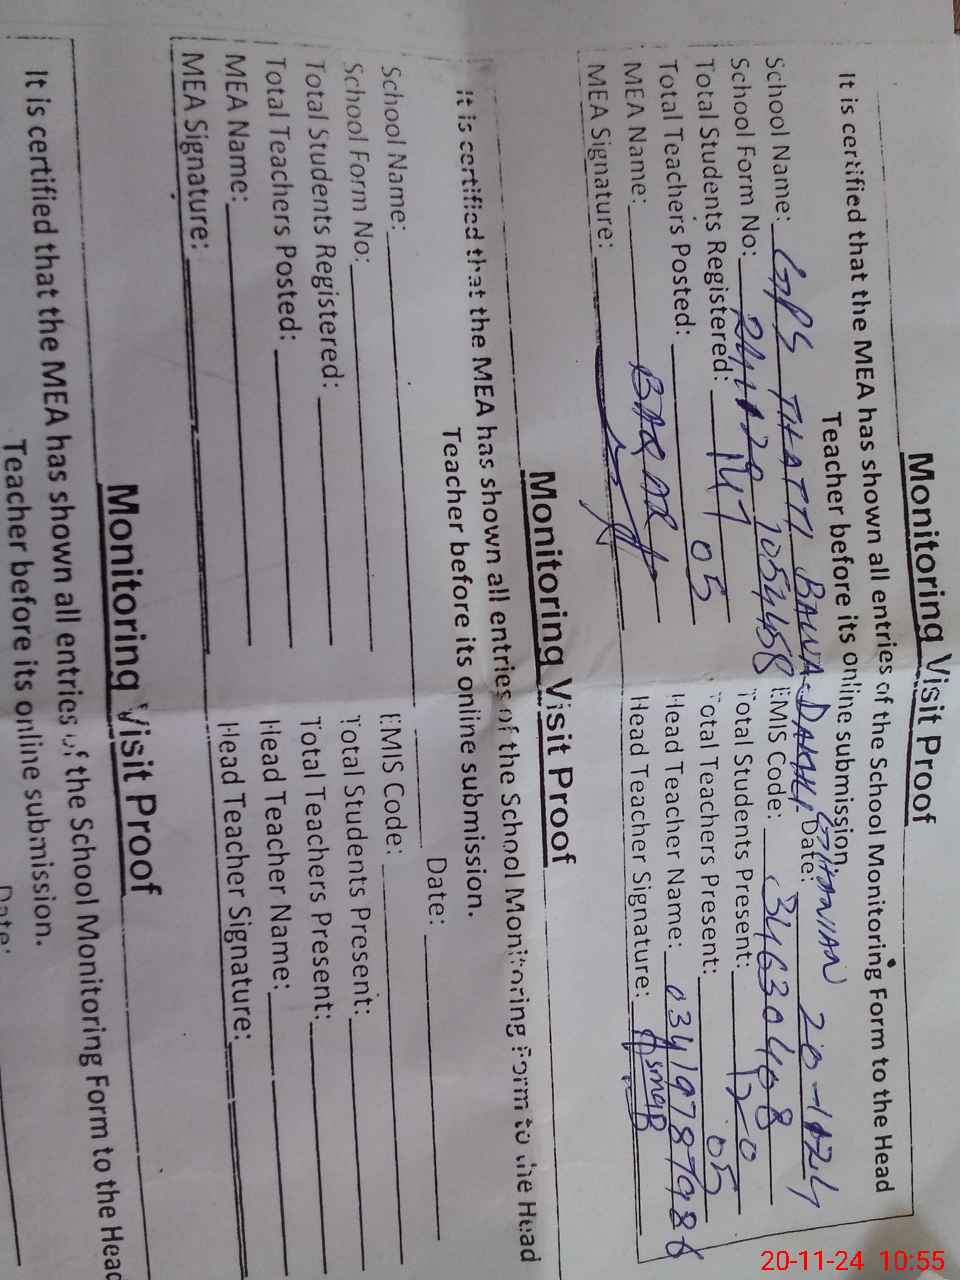 Monitoring Visit Proof
It is certified that the MEA has shown all entries of the School Monitoring Form to the Head
Teacher before its online submission
School Name: GPS THATTI BALWA DAKHLI Date: 20-11-24
School Form No: 1054458 EMIS Code: 34630408
Total Students Registered: 147 Total Students Present: 120
Total Teachers Posted: 05 Total Teachers Present: 05
MEA Name: Head Teacher Name: 03419787986
MEA Signature: Head Teacher Signature:
Monitoring Visit Proof
It is certified that the MEA has shown all entries of the School Monitoring Form to the Head
Teacher before its online submission.
Date:
School Name: EMIS Code:
School Form No: Total Students Present:
Total Students Registered: Total Teachers Present:
Total Teachers Posted: Head Teacher Name:
MEA Name: Head Teacher Signature:
MEA Signature:
Monitoring Visit Proof
It is certified that the MEA has shown all entries of the School Monitoring Form to the Head
Teacher before its online submission.
Date:
20-11-24 10:55